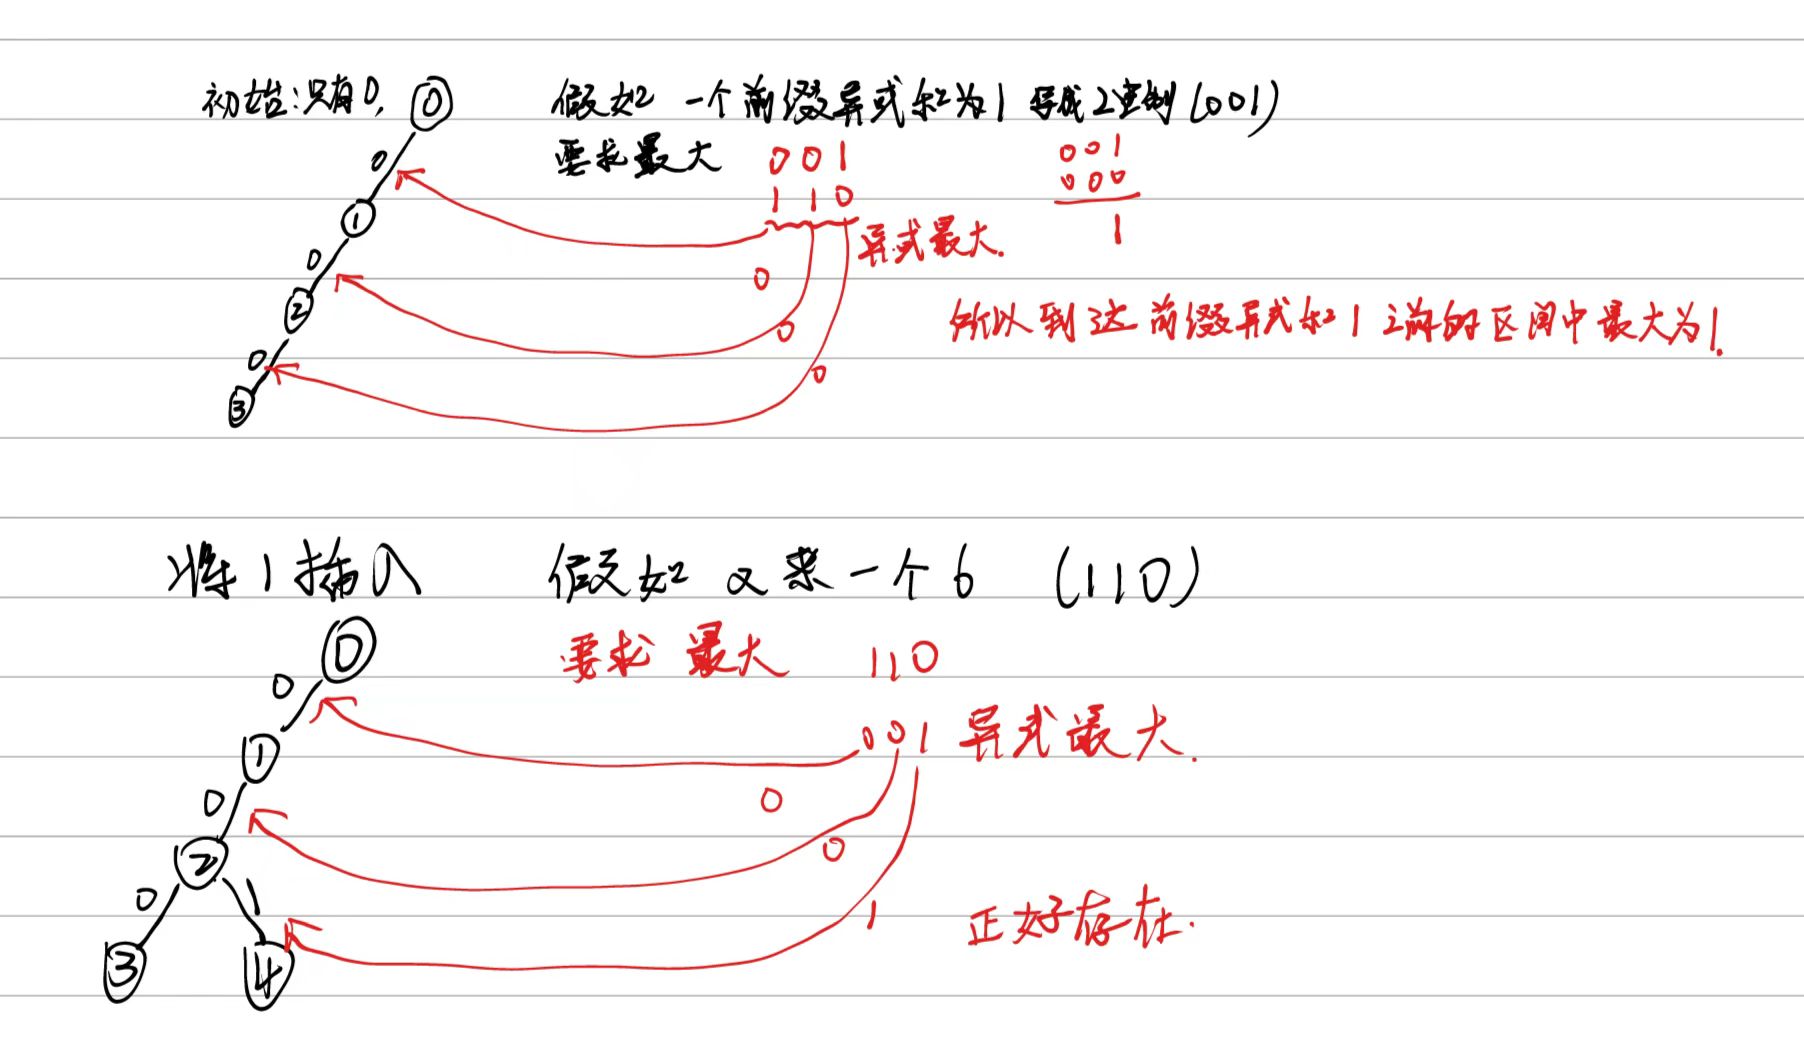 初始:只有0, 0 假如 一个前缀异或和为1 写成2进制(001)
0 要求最大 001 001
110 000
1 异或最大. 1
0 0
2 0 所以到达前缀异或和1之前的区间中最大为1.
0 0
3
将1插入 假如又来一个6 (110)
0 要求 最大 110
0
1 001 异或最大.
0 0
2 0
0 1 1 正好存在.
3 4